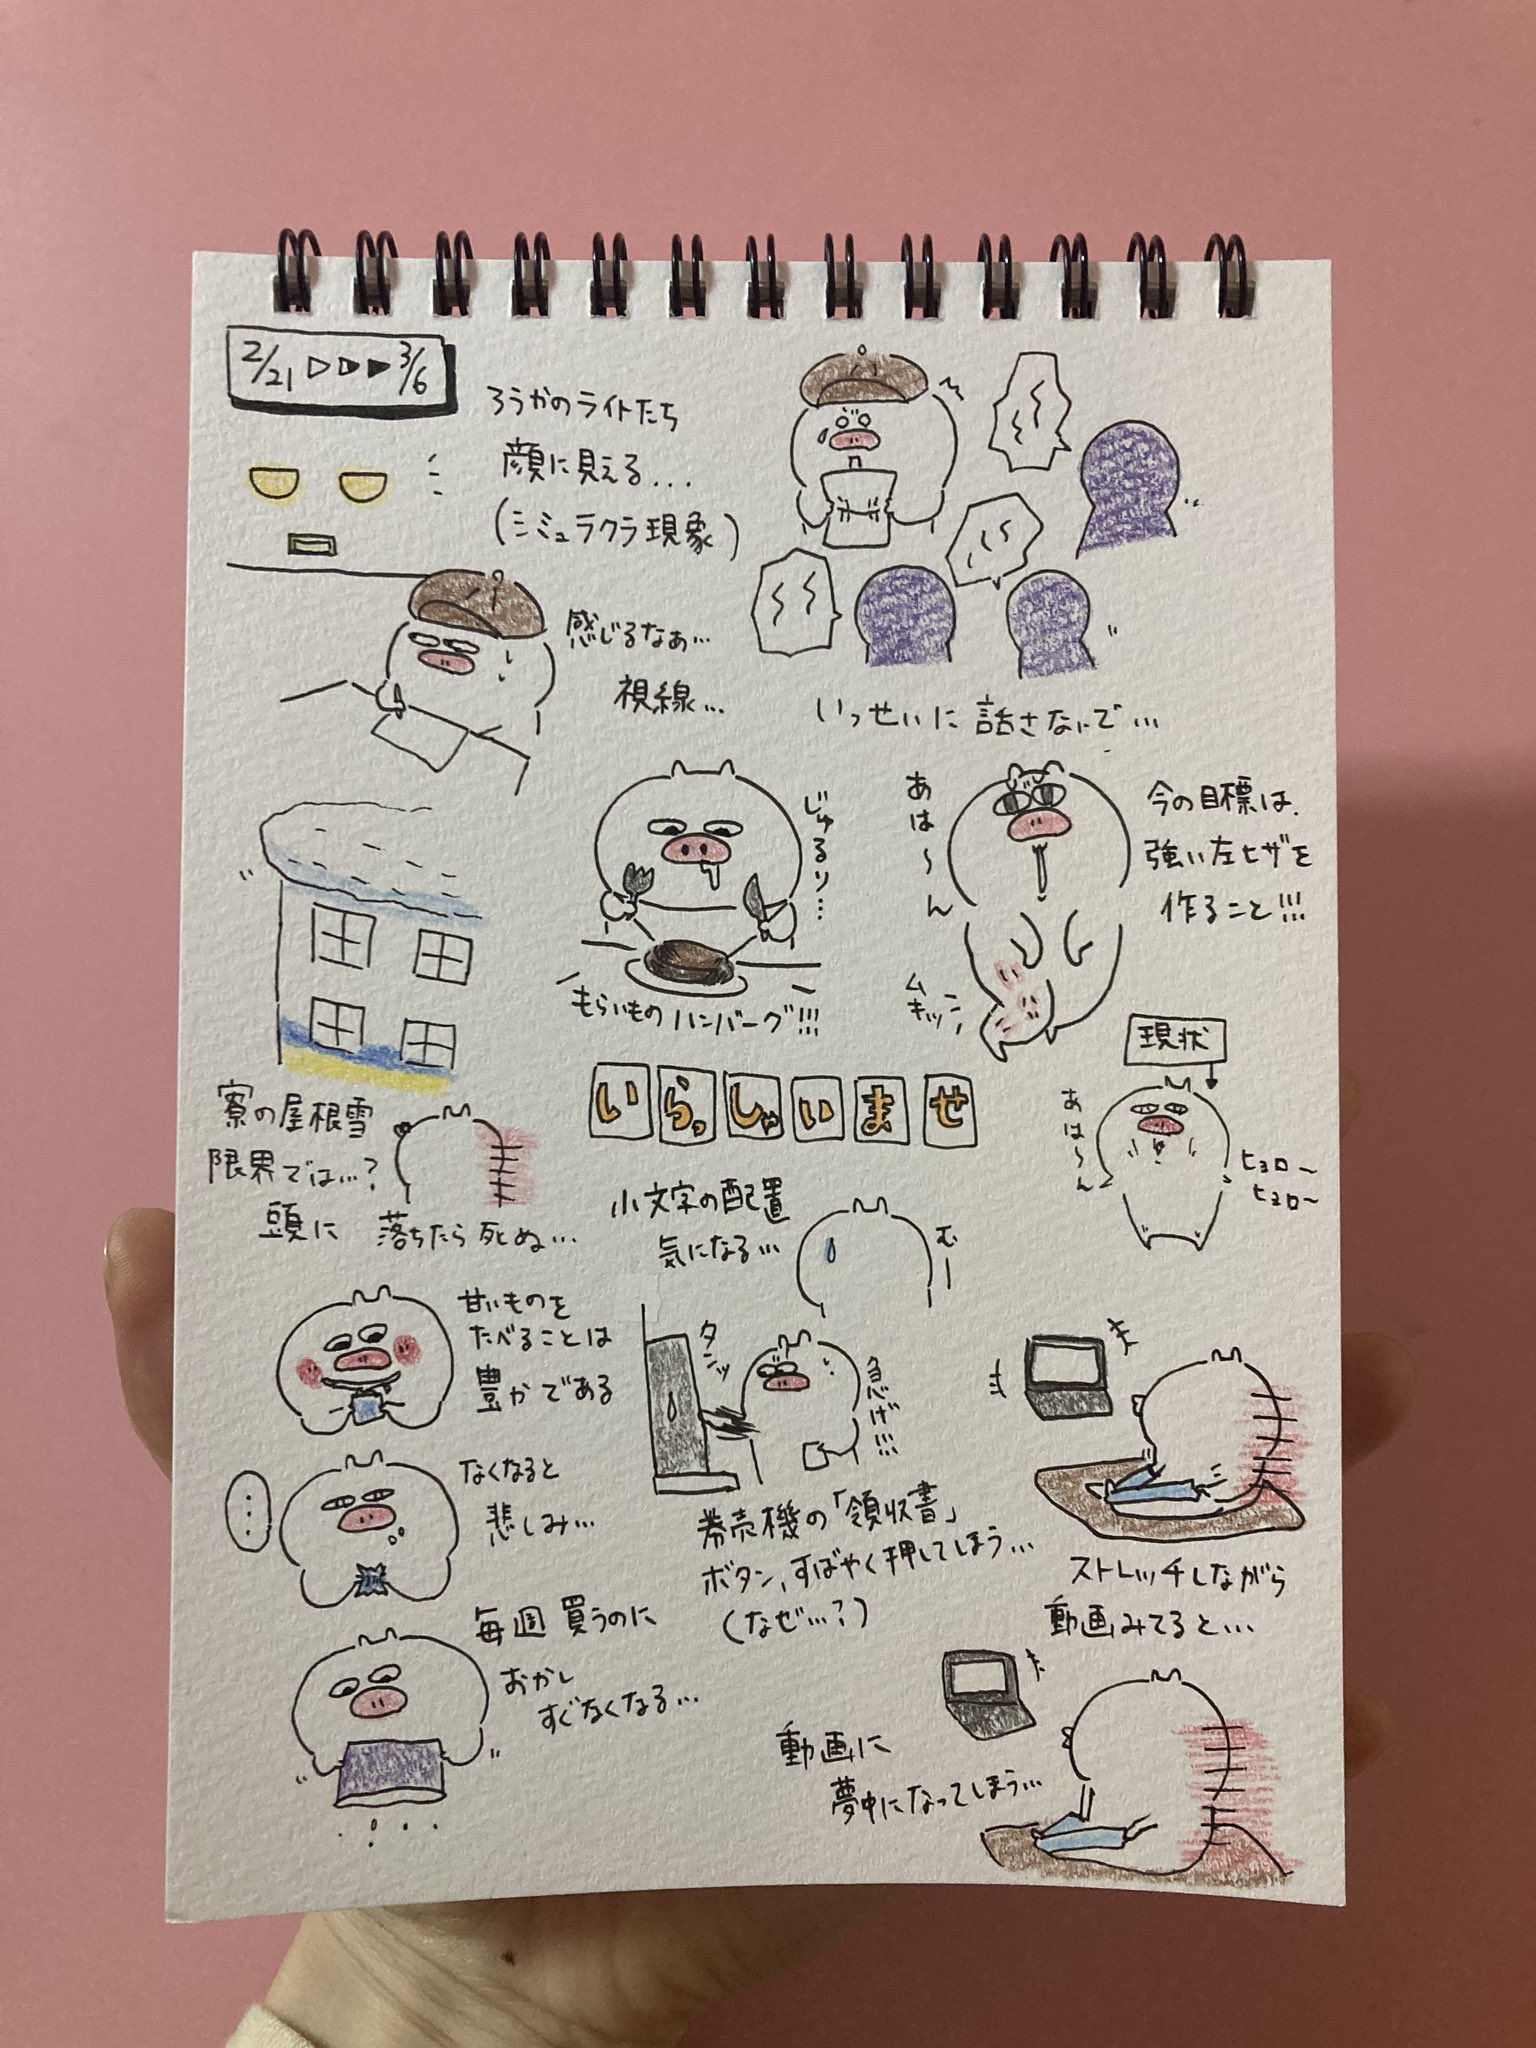 2/21 ▷▶▶ 3/6
ろうかのライトたち
顔に見える...
(シミュラクラ現象)
感じるなぁ...
視線...
いっせいに話さないで...
じゅるり...
もらいものハンバーグ!!!
あは〜ん
今の目標は、
強い左ヒザを
作ること!!!
ムキッ
現状
あは〜ん
ヒョロ〜
ヒョロ〜
寮の屋根雪
限界では...?
頭に 落ちたら死ぬ...
いらっしゃいませ
小文字の配置
気になる...
むー
甘いものを
たべることは
豊かである
...
なくなると
悲しみ...
毎週買うのに
おかし
すぐなくなる...
タンッ
急げ!!!
券売機の「領収書」
ボタン、すばやく押してしまう...
(なぜ...?)
ストレッチしながら
動画みてると...
動画に
夢中になってしまう...